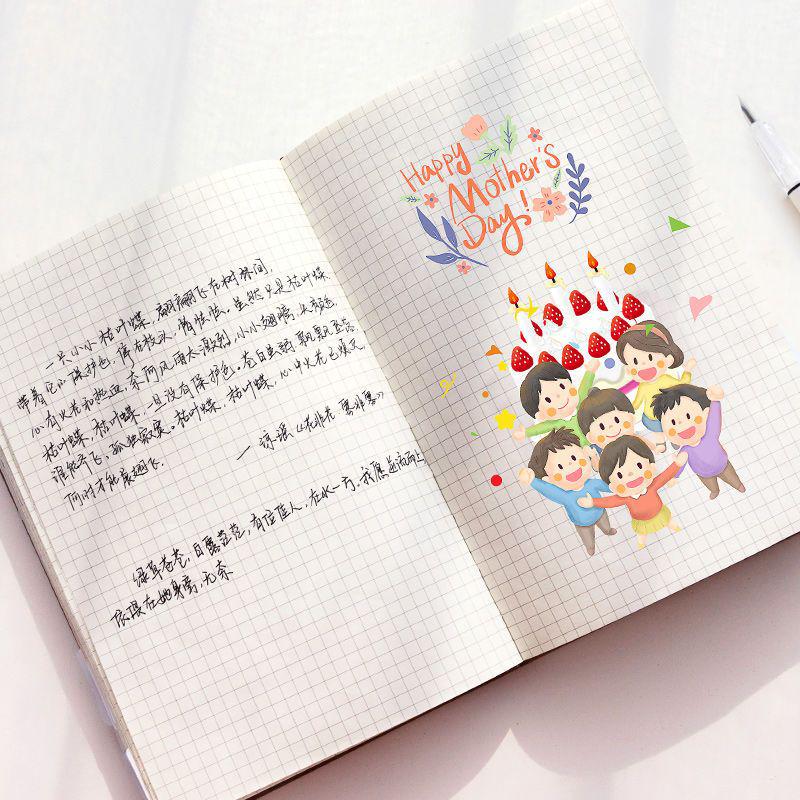 一只小小枯叶蝶,翩翩飞在树林间,
带着它的保护色,停在枝头,悄怯怯。虽然只是枯叶蝶
心有火花和热血,奈何风雨太激烈,小小翅膀,
枯叶蝶,枯叶蝶,一旦没有保护色,苍白 飘飘
谁能齐飞,孤独寂寞。枯叶蝶,枯叶蝶,心中火花已熄灭,
何时才能展翅飞. —琼瑶《花非花 雾非雾》
绿草苍苍,白露茫茫,有位佳人,在水一方,我愿逆流而上,
依偎在她身旁,无奈
Happy
Mother's
Day!